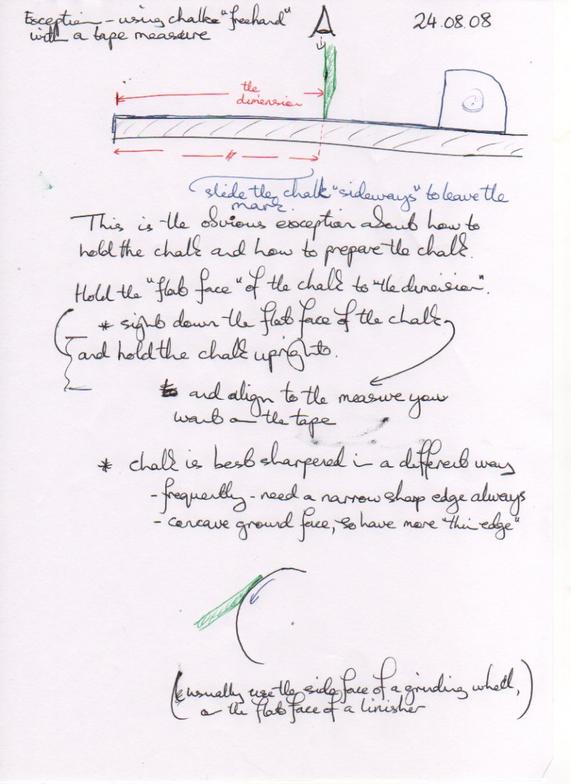 Exception - using chalk "freehand"
with a tape measure
24.08.08
the
dimension
slide the chalk "sideways" to leave the
mark.
This is the obvious exception about how to
hold the chalk and how to prepare the chalk.
Hold the "flat face" of the chalk to "the dimension".
* sight down the flat face of the chalk
and hold the chalk upright.
and align to the measure you
want on the tape
* chalk is best sharpened in a different way
- frequently - need a narrow sharp edge always
- concave ground face, so have more "thin edge"
(usually use the side face of a grinding wheel,
or the flat face of a linisher)